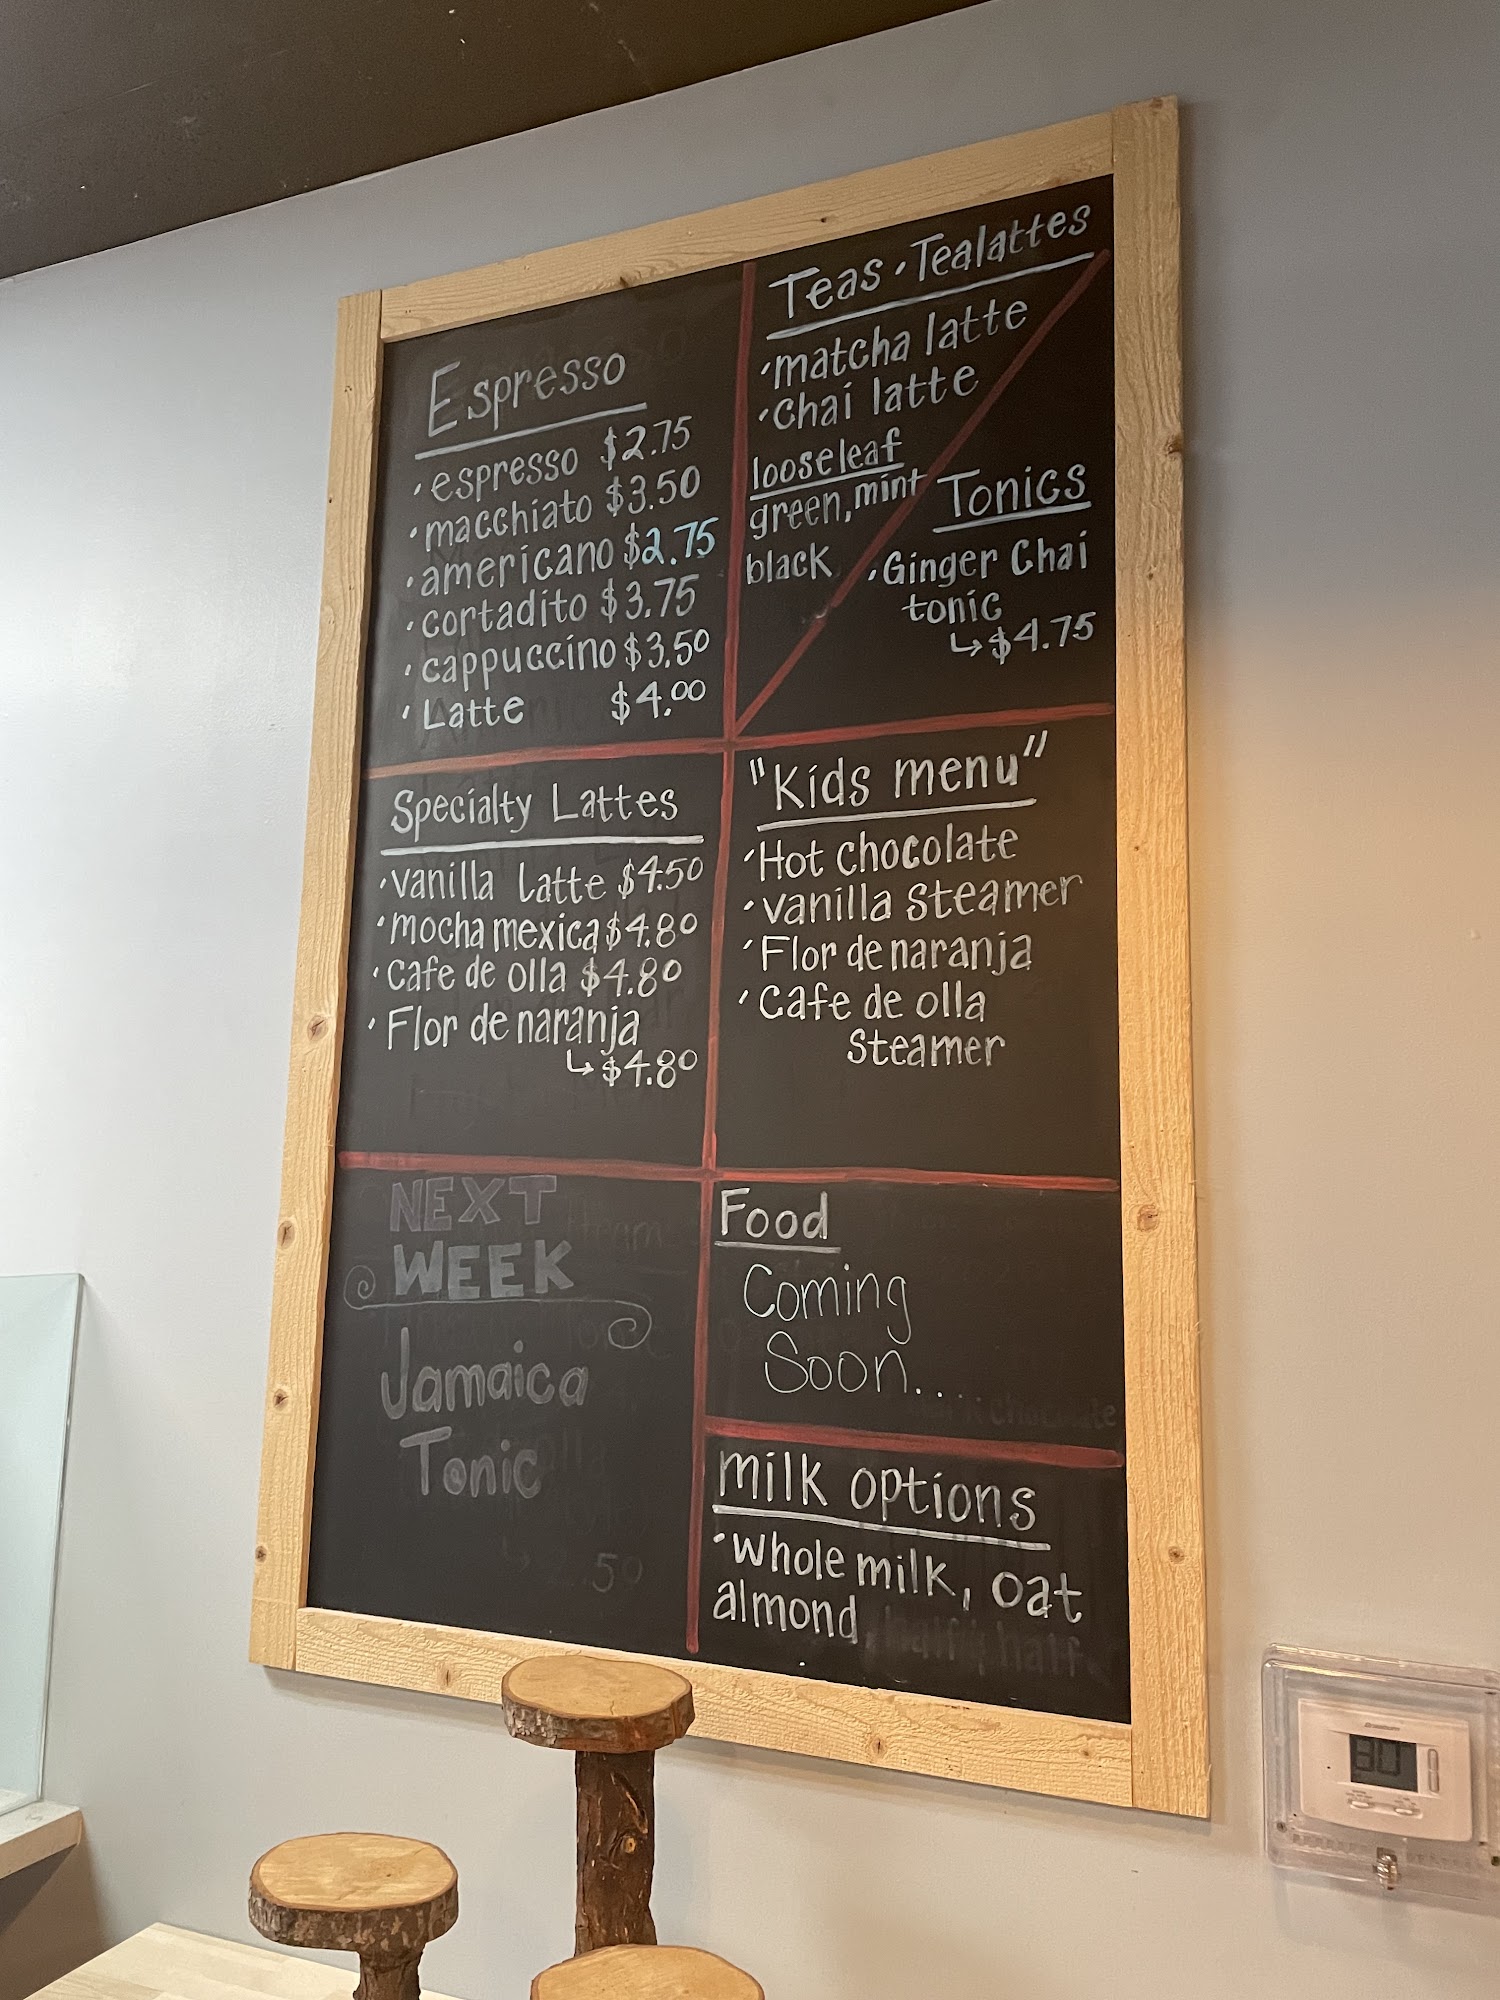 Espresso
·espresso $2.75
·macchiato $3.50
·americano $2.75
·cortadito $3.75
·cappuccino $3.50
·Latte $4.00
Teas·Tealattes
·matcha latte
·Chai latte
looseleaf
green, mint
black
Tonics
·Ginger Chai
tonic
↳$4.75
Specialty Lattes
·vanilla Latte $4.50
·mocha mexica $4.80
·Cafe de olla $4.80
·Flor de naranja
↳$4.80
"Kids menu"
·Hot chocolate
·vanilla Steamer
·Flor de naranja
·Cafe de olla
Steamer
NEXT
WEEK
Jamaica
Tonic
Food
Coming
Soon....
milk options
·whole milk, oat
almond, half & half
80